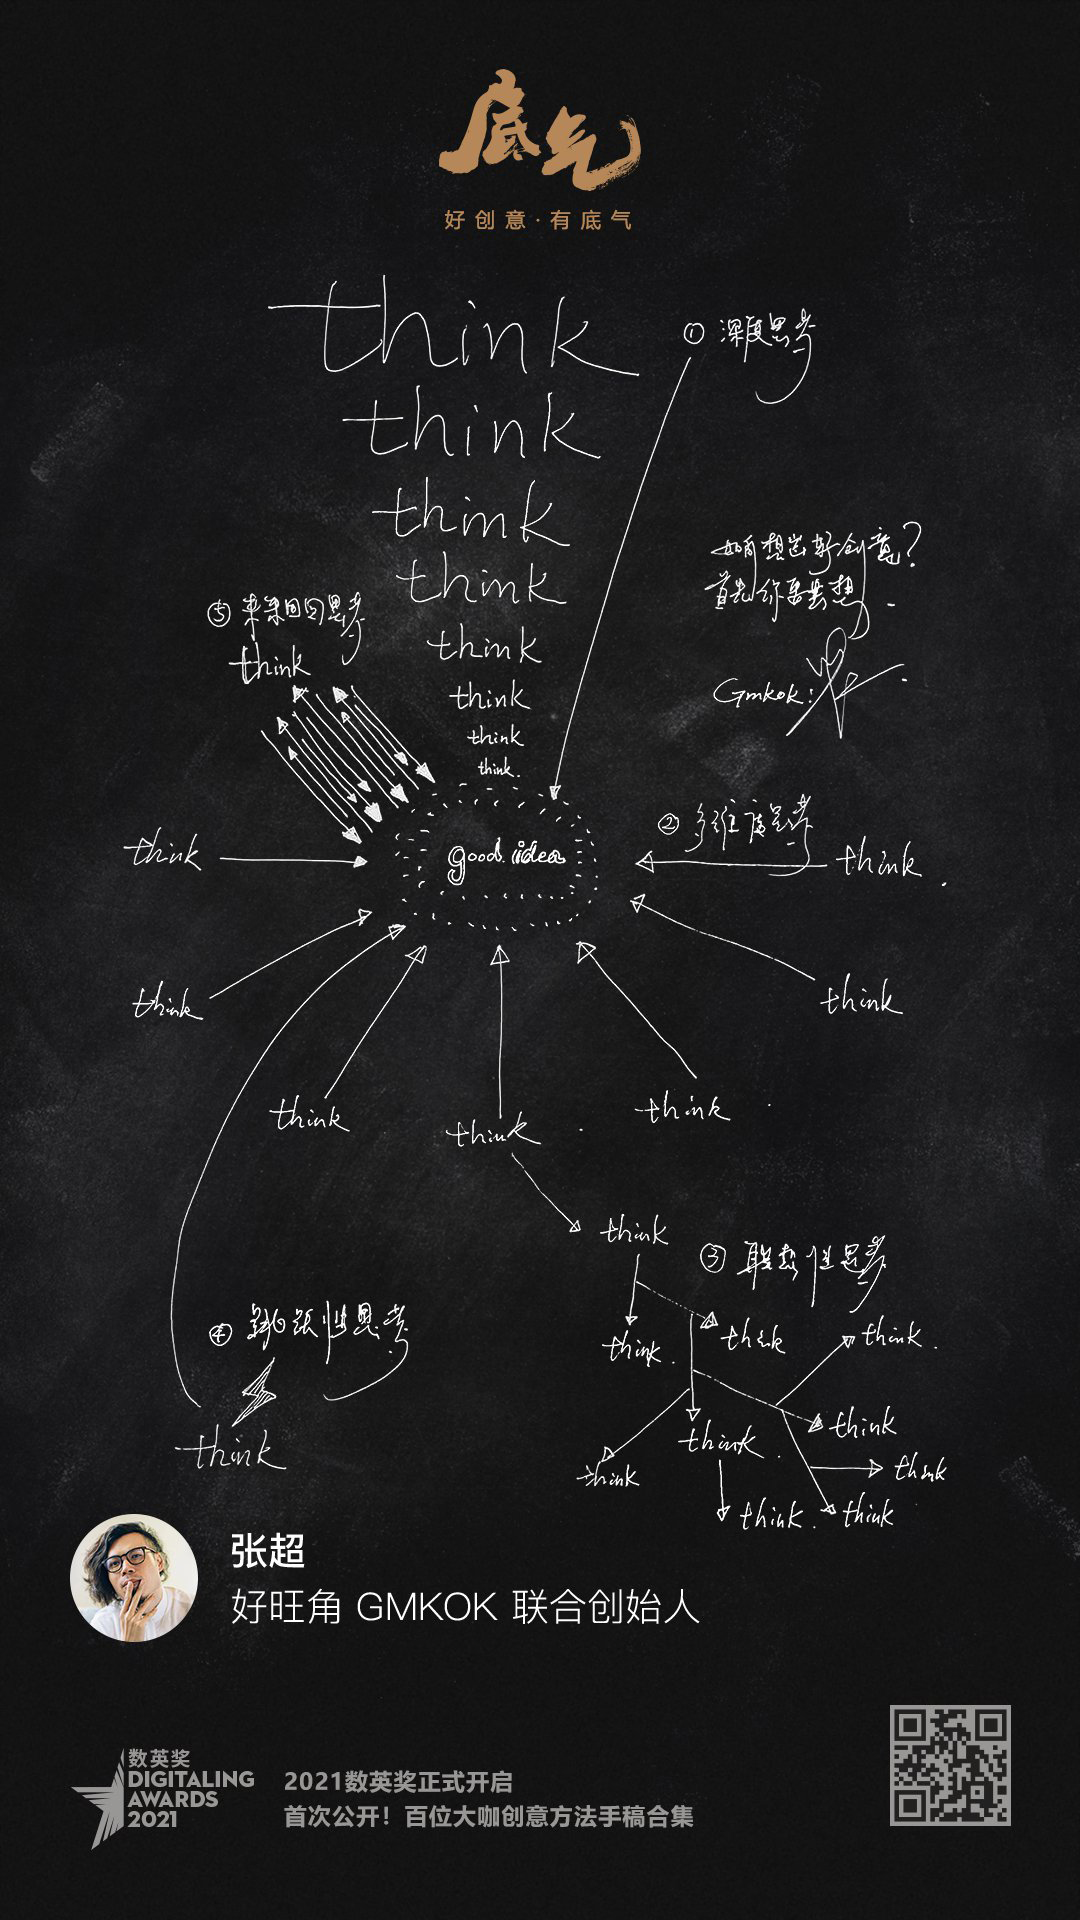 底气
好创意·有底气
think
① 深度思考
think
think
如何想出好创意?
首先你要去想.
think
⑤ 来来回回思考
think
think
think
Gmkok:
think
think
think.
② 多维度思考
good idea
think
think.
think
think
think
think
think
think
③ 联想性思考
④ 跳跃性思考
think
think.
think
think.
think
think.
think
think
think
think.
think
张超
好旺角 GMKOK 联合创始人
数英奖
DIGITALING
AWARDS
2021
2021数英奖正式开启
首次公开！百位大咖创意方法手稿合集